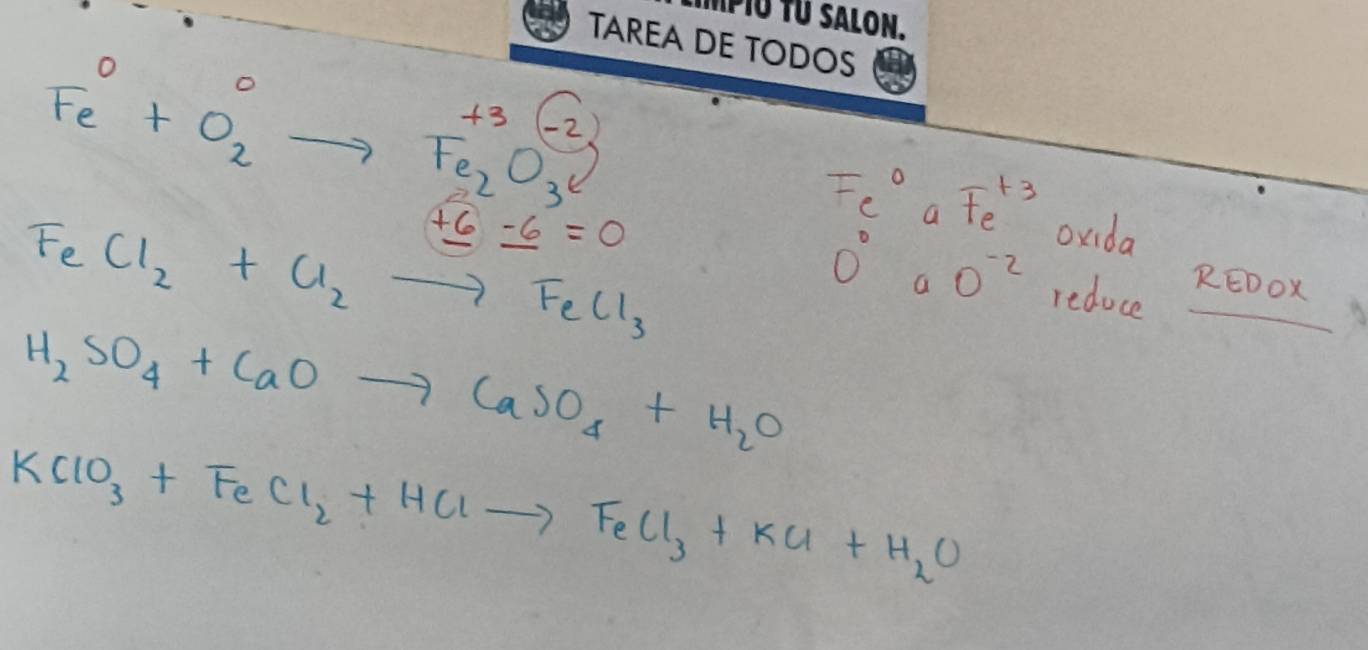 LIMPIO TU SALON.
TAREA DE TODOS
Fe⁰ + O₂⁰ → Fe₂⁺³O₃⁻²
+6 -6 = 0
Fe⁰ a Fe⁺³ oxida
O⁰ a O⁻² reduce REDOX
FeCl₂ + Cl₂ → FeCl₃
H₂SO₄ + CaO → CaSO₄ + H₂O
KClO₃ + FeCl₂ + HCl → FeCl₃ + KCl + H₂O